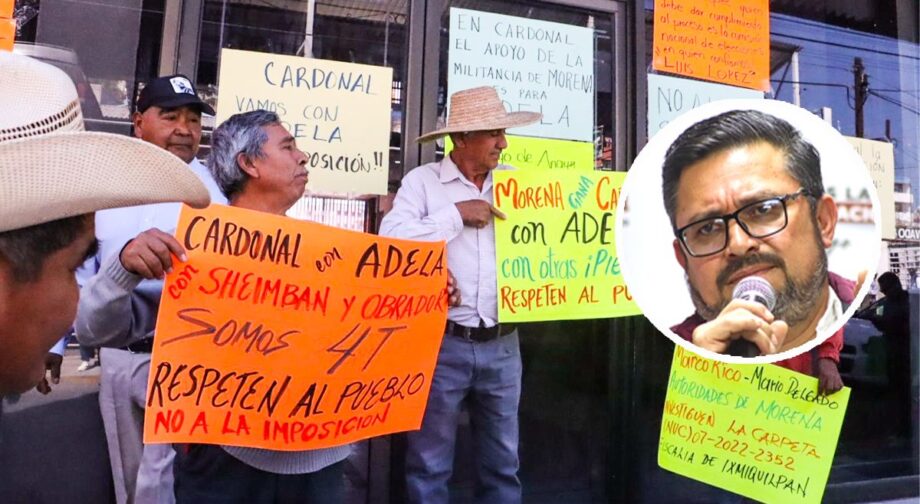 CARDONAL
VAMOS CON
ADELA
IMPOSICIÓN!!
EN CARDONAL
EL APOYO DE LA
MILITANCIA DE MORENA
ES PARA
ADELA
debe dar cumplimiento
al proceso es la comisión
nacional de elecciones
en quien confiamos
LUIS LOPEZ"
NO A
CARDONAL con ADELA
con SHEIMBAN Y OBRADOR
SOMOS 4T
RESPETEN AL PUEBLO
NO A LA IMPOSICION
MORENA GANA
con ADE
con otras ¡PIE
RESPETEN AL PU
MARCO RICO - MARIO DELGADO
AUTORIDADES DE MORENA
INVESTIGUEN LA CARPETA
(NUC) 07-2022-2352
FISCALIA DE IXMIQUILPAN